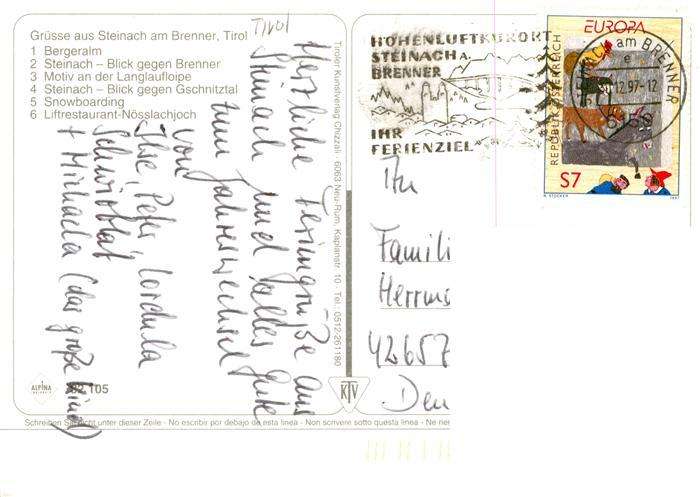 Grüsse aus Steinach am Brenner, Tirol
1 Bergeralm
2 Steinach – Blick gegen Brenner
3 Motiv an der Langlaufloipe
4 Steinach – Blick gegen Gschnitztal
5 Snowboarding
6 Liftrestaurant-Nösslachjoch
Tirol
Herzliche Feriengrüße aus
Steinach und alles Gute
zum Jahreswechsel
von
Ilse, Peter, Cordula
+ Michaela (das große
ALPINA
105
Tiroler Kunstverlag Chizzali · 6063 Neu-Rum, Kaplanstr. 10 · Tel. 0512-261180
KTV
HÖHENLUFTKURORT
STEINACH a.
BRENNER
IHR
FERIENZIEL
EUROPA
REPUBLIK ÖSTERREICH
S7
1997
am BRENNER
12.97-12
An
Famili
Herrm
42657
Den
Schreiben Sie nicht unter dieser Zeile - No escribir por debajo de esta linea - Non scrivere sotto questa linea - Ne rien